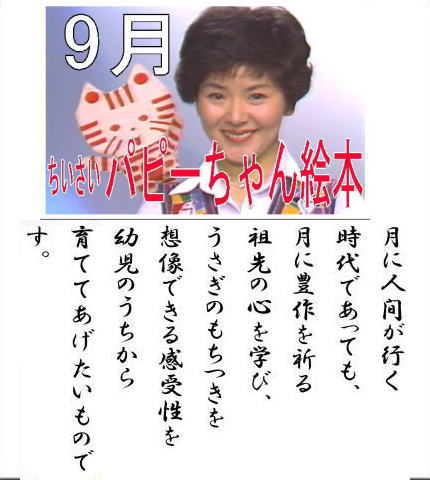 9月
ちいさいパピーちゃん絵本
月に人間が行く
時代であっても、
月に豊作を祈る
祖先の心を学び、
うさぎのもちつきを
想像できる感受性を
幼児のうちから
育ててあげたいもので
す。